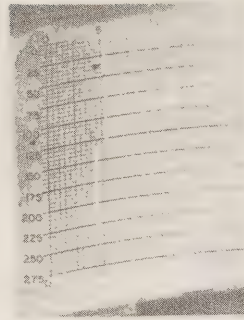 5
25
50
75
100
125
150
175
200
225
250
275